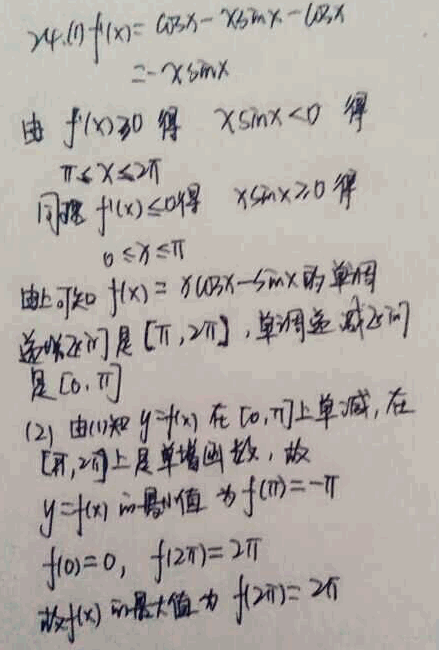 24.(1) f'(x)= cosx - xsinx - cosx
= -xsinx
由 f'(x)≥0 得 xsinx<0 得
π≤x≤2π
同理 f'(x)≤0得 xsinx≥0 得
0≤x≤π
由上可知 f(x)= xcosx-sinx的单调
递增区间是[π,2π],单调递减区间
是[0,π]
(2) 由(1)知 y=f(x) 在[0,π]上单减,在
[π,2π]上是单增函数,故
y=f(x) 的最小值为 f(π)=-π
f(0)=0, f(2π)=2π
故f(x) 的最大值为 f(2π)=2π